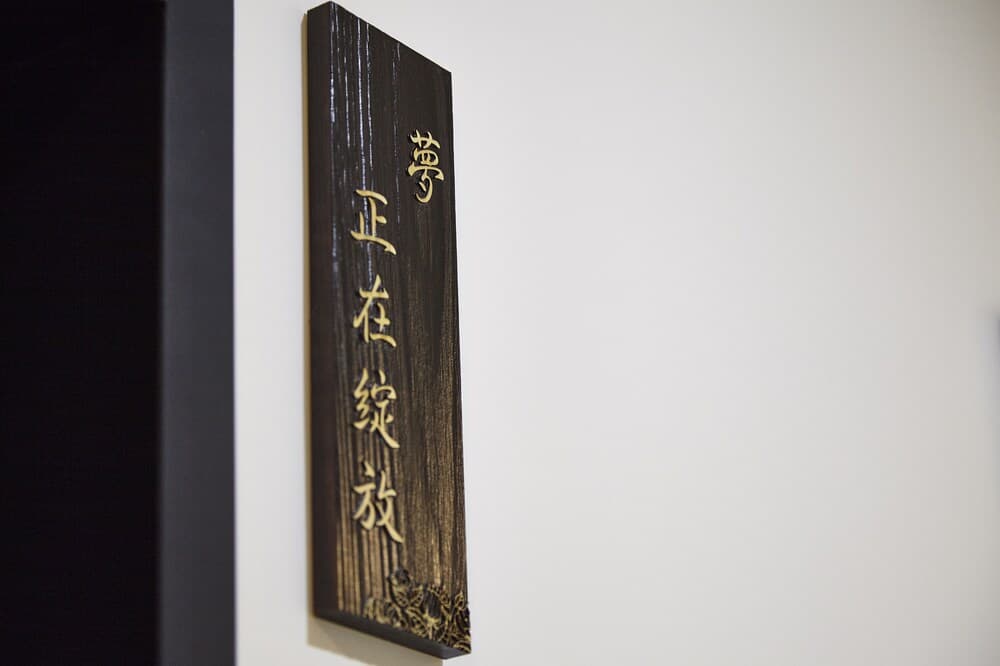 夢
正在綻放